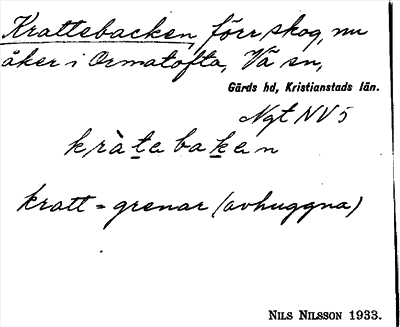 Krattebacken, förr skog, nu
åker i Ormatofta, Vä sn,
Gärds hd, Kristianstads län.
Ngt NV 5
kràtebaken
kratt = grenar (avhuggna)
NILS NILSSON 1933.